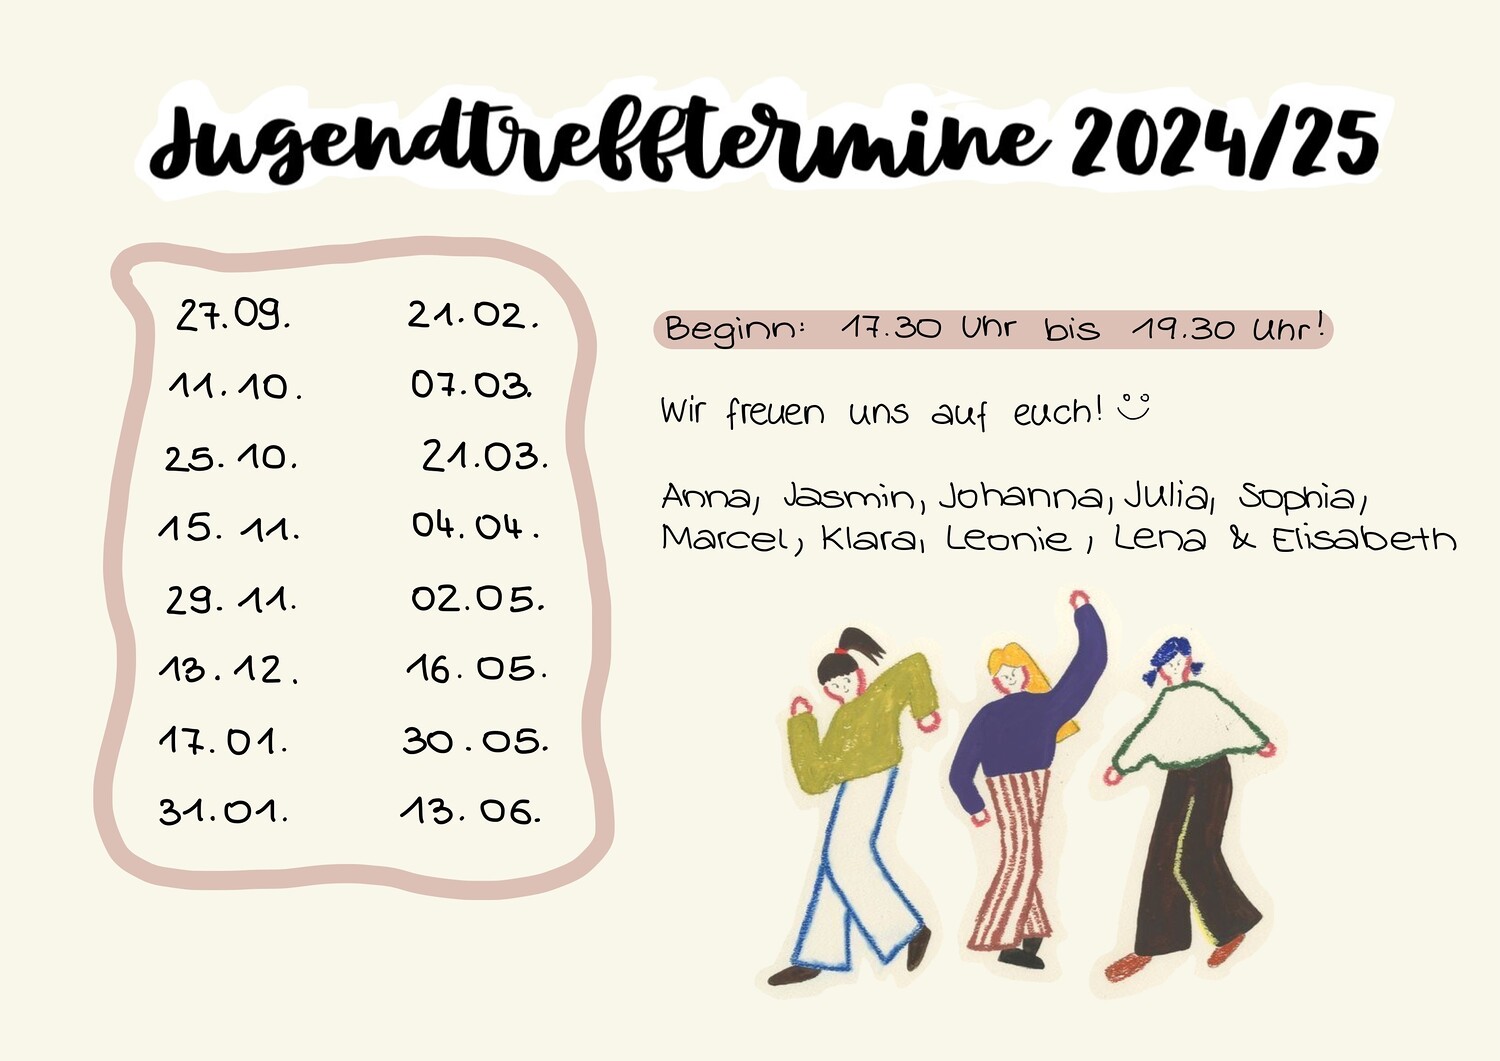 Jugendtrefftermine 2024/25
27.09.
11.10.
25.10.
15.11.
29.11.
13.12.
17.01.
31.01.
21.02.
07.03.
21.03.
04.04.
02.05.
16.05.
30.05.
13.06.
Beginn: 17.30 Uhr bis 19.30 Uhr!
Wir freuen uns auf euch! ☺
Anna, Jasmin, Johanna, Julia, Sophia,
Marcel, Klara, Leonie, Lena & Elisabeth